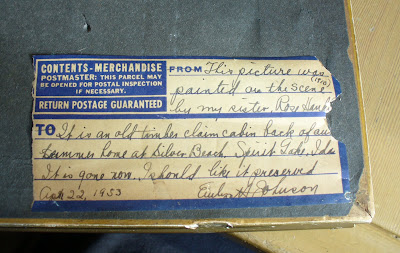 CONTENTS-MERCHANDISE
POSTMASTER: THIS PARCEL MAY
BE OPENED FOR POSTAL INSPECTION
IF NECESSARY.
RETURN POSTAGE GUARANTEED
FROM This picture was
(1910)
painted on the scene
by my sister, Rose
TO It is an old timber claim cabin back of our
summer home at Silver Beach, Spirit Lake, Ida
It is gone now. I should like it preserved
22, 1953
Johnson